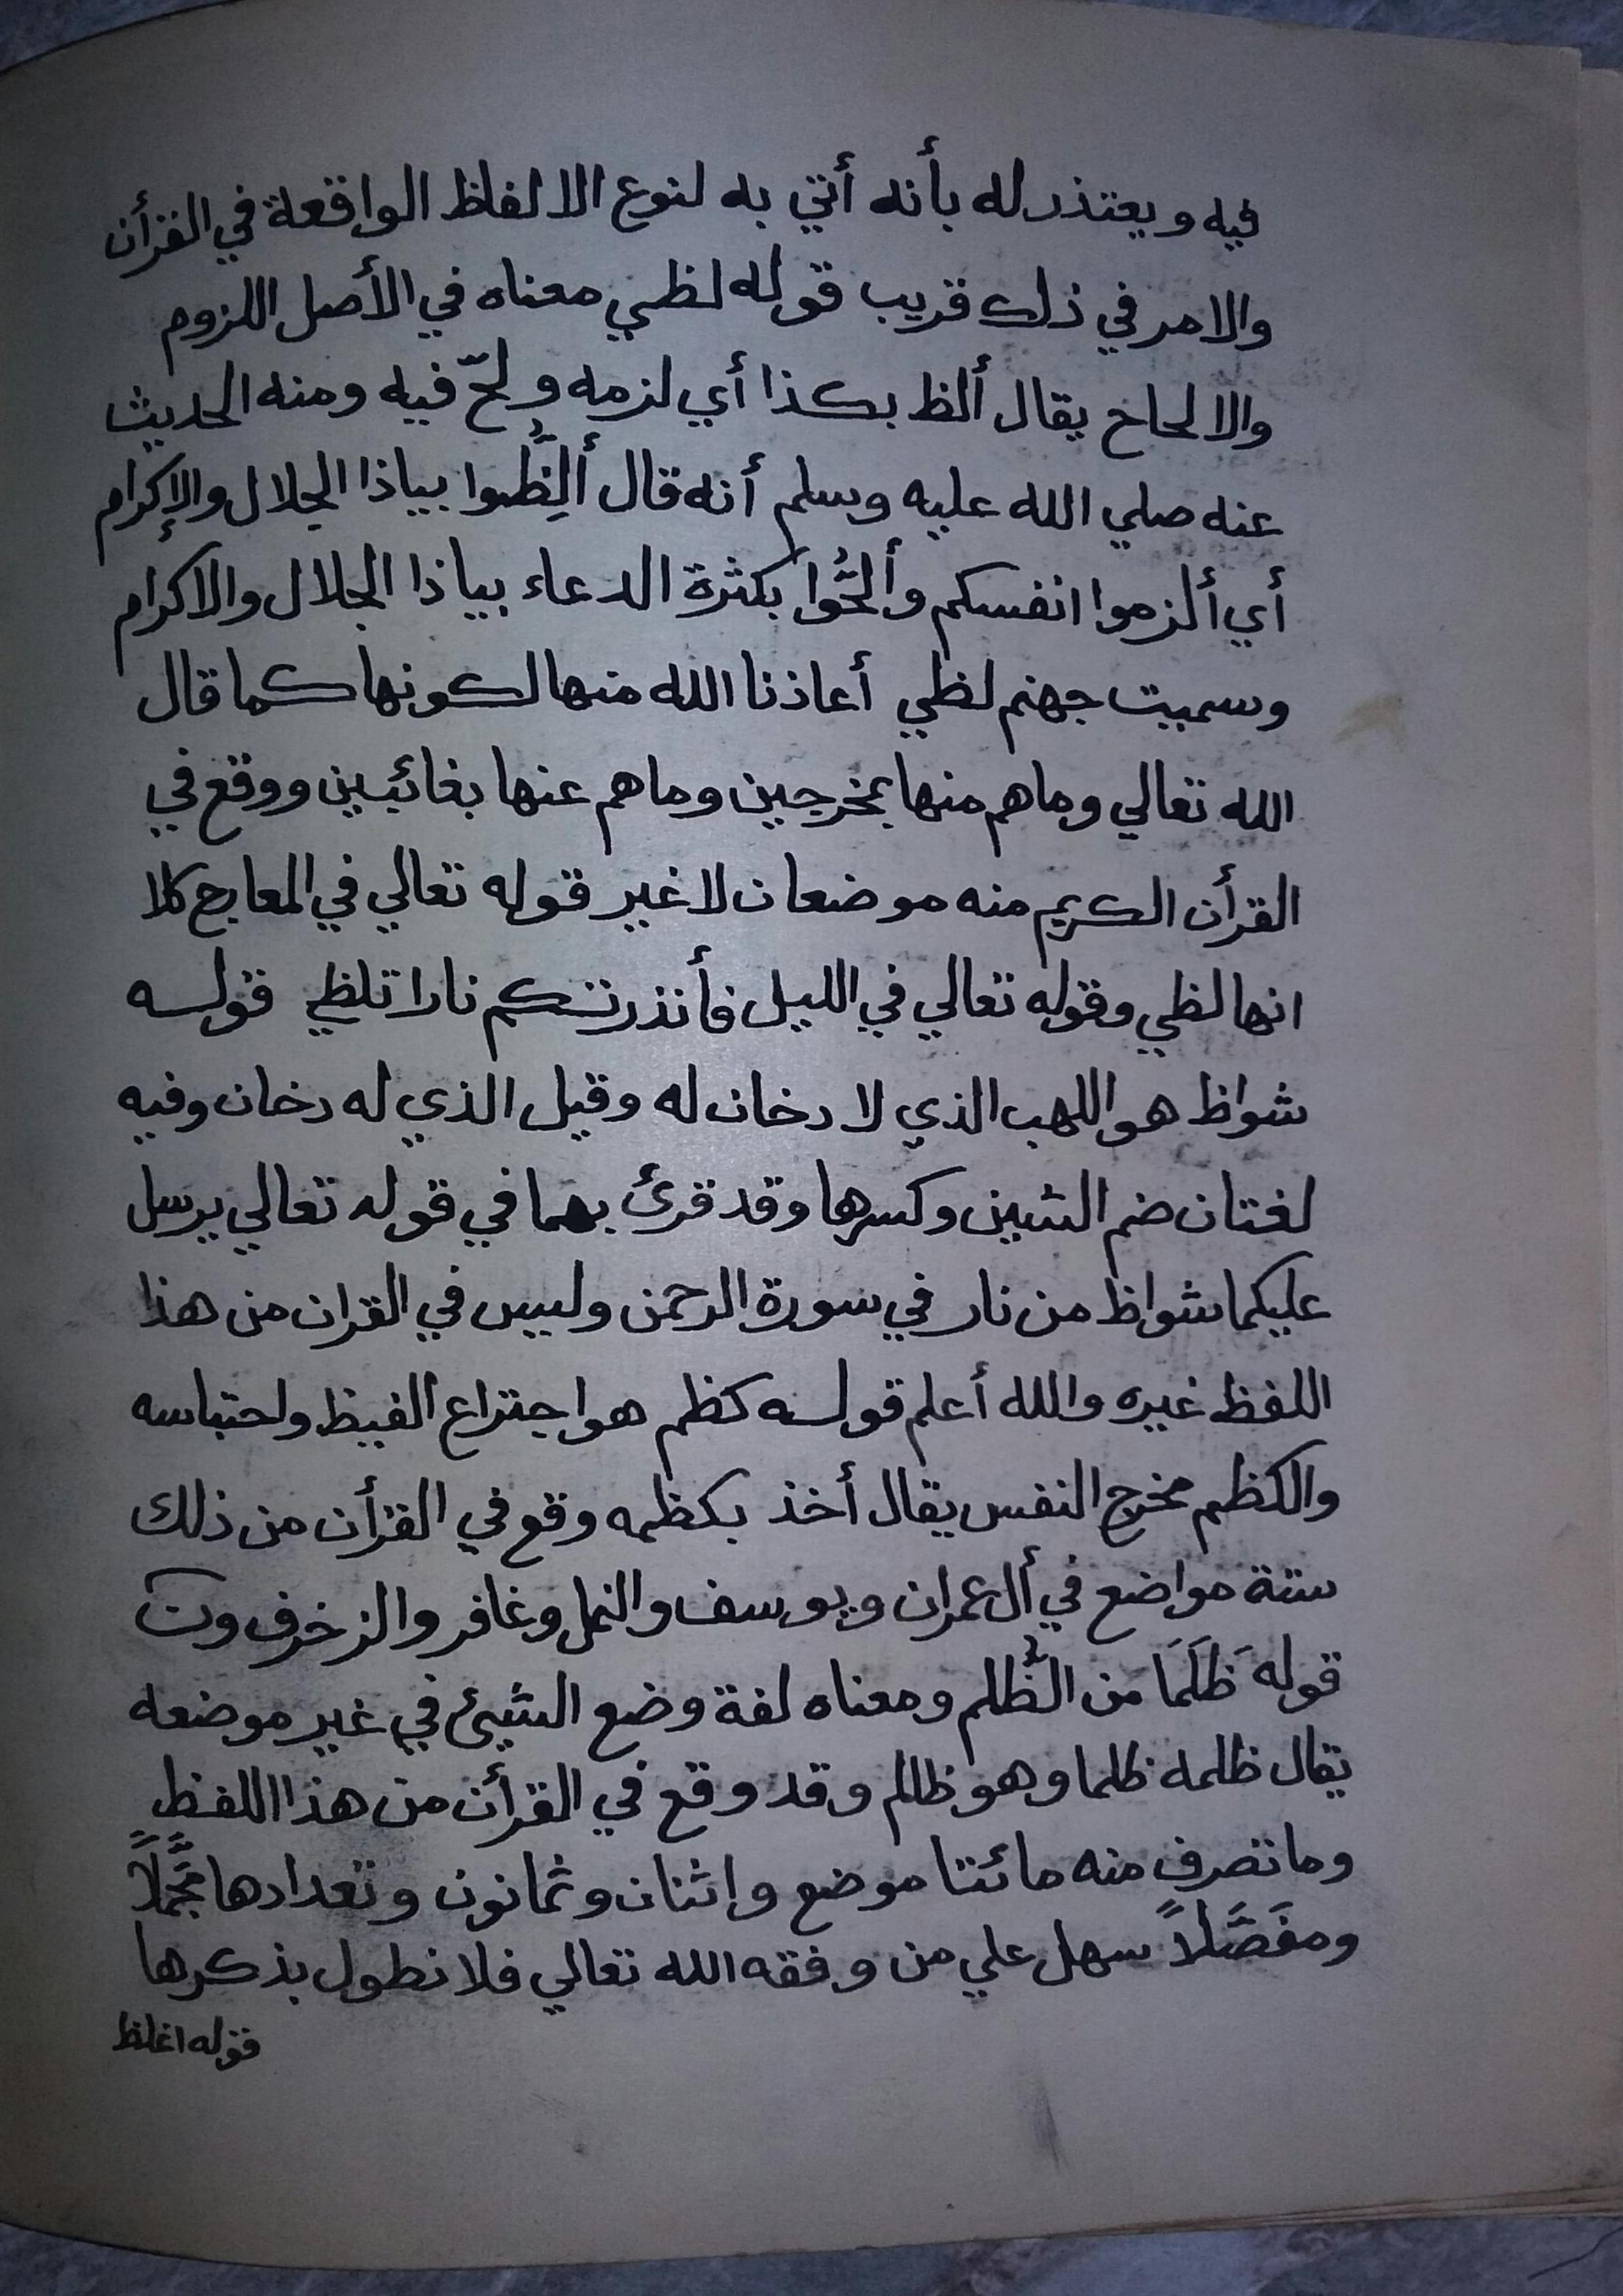 فيه ويعتذر له بأنه أتي به لنوع الالفاظ الواقعة في القرأن
والامر في ذلك قريب قوله لظي معناه في الأصل اللزوم
والالحاح يقال ألظ بكذا أي لزمه ولحّ فيه ومنه الحديث
عنه صلي الله عليه وسلم أنه قال ألِظُّوا بياذا الجلال والإكرام
أي ألزموا انفسكم وألحُّوا بكثرة الدعاء بياذا الجلال والاكرام
وسميت جهنم لظي أعاذنا الله منها لكونها كما قال
الله تعالي وما هم منها بمخرجين وما هم عنها بغائبين ووقع في
القرأن الكريم منه موضعان لا غير قوله تعالي في المعارج كلا
انها لظي وقوله تعالي في الليل فأنذرتكم نارا تلظي قوله
شواظ هو اللهب الذي لا دخان له وقيل الذي له دخان وفيه
لغتان ضم الشين وكسرها وقد قرئ بهما في قوله تعالي يرسل
عليكما شواظ من نار في سورة الرحمن وليس في القران من هذا
اللفظ غيره والله أعلم قوله كظم هو اجتراع الغيظ واحتباسه
والكظم مخرج النفس يقال أخذ بكظمه وقع في القرأن من ذلك
ستة مواضع في أل عمران ويوسف والنحل وغافر والزخرف ون
قوله ظَلَمَا من الظُّلم ومعناه لغة وضع الشيئ في غير موضعه
يقال ظلمه ظلما وهو ظالم وقد وقع في القرأن من هذا اللفظ
وما تصرف منه مائتا موضع وإثنان وثمانون وتعدادها مجَّملاً
ومفَصَّلاً سهل علي من وفقه الله تعالي فلا نطول بذكرها
قوله اغلظ